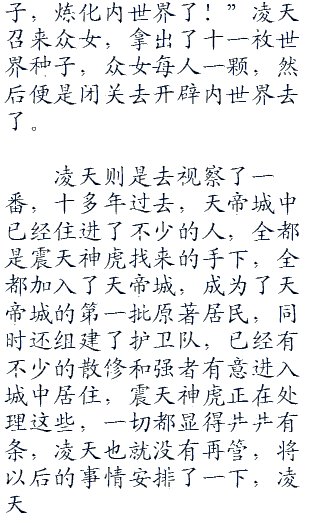 子，炼化内世界了！”凌天
召来众女，拿出了十一枚世
界种子，众女每人一颗，然
后便是闭关去开辟内世界去
了。
凌天则是去视察了一
番，十多年过去，天帝城中
已经住进了不少的人，全都
是震天神虎找来的手下，全
都加入了天帝城，成为了天
帝城的第一批原著居民，同
时还组建了护卫队，已经有
不少的散修和强者有意进入
城中居住，震天神虎正在处
理这些，一切都显得井井有
条，凌天也就没有再管，将
以后的事情安排了一下，凌
天